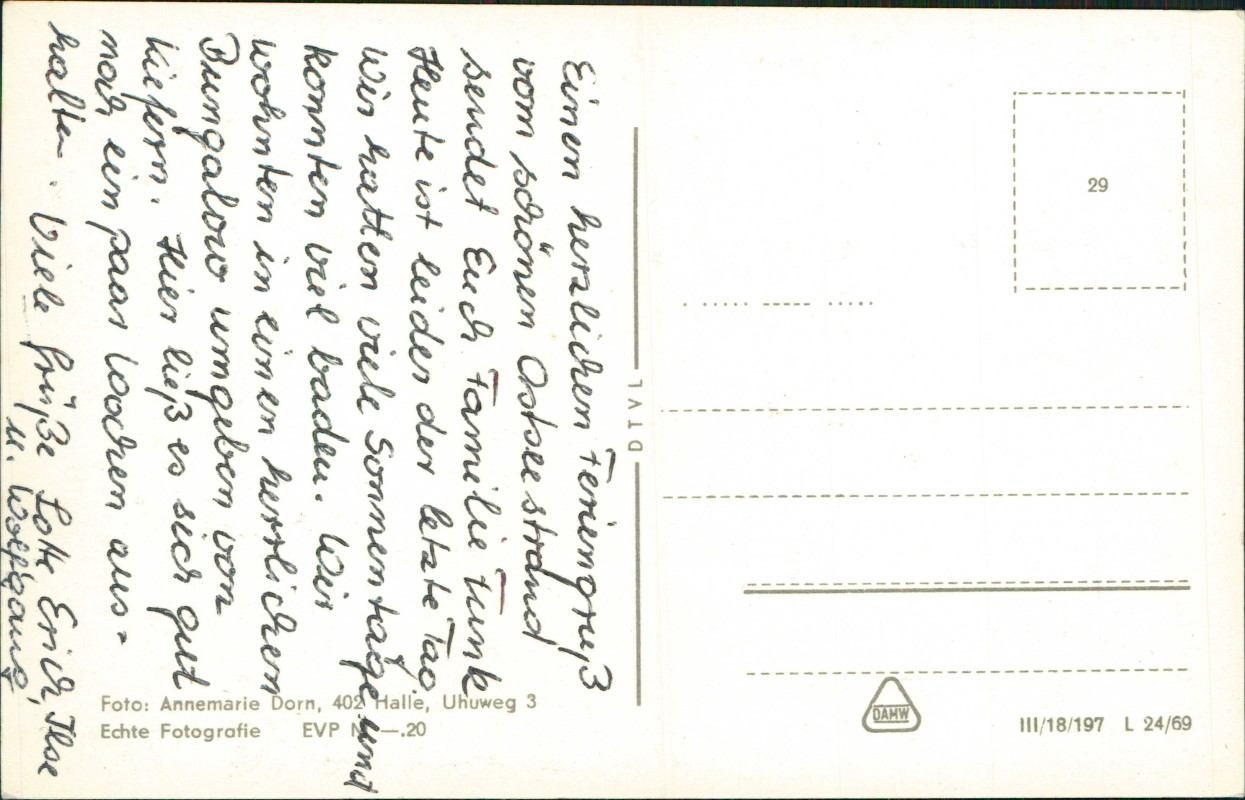 Einen herzlichen Feriengruß
vom schönen Ostseestrand
sendet Euch Familie Funk
Heute ist leider der letzte Tag
Wir hatten viele Sonnentage und
konnten viel baden. Wir
wohnten in einen herrlichen
Bungalow umgeben von
Kiefern. Hier ließ es sich gut
noch ein paar Wochen aus-
halten. Viele Grüße Lotte Erich, Ilse
u. Wolfgang
DTVL
29
Foto: Annemarie Dorn, 402 Halle, Uhuweg 3
Echte Fotografie EVP —.20
DAMW
III/18/197 L 24/69